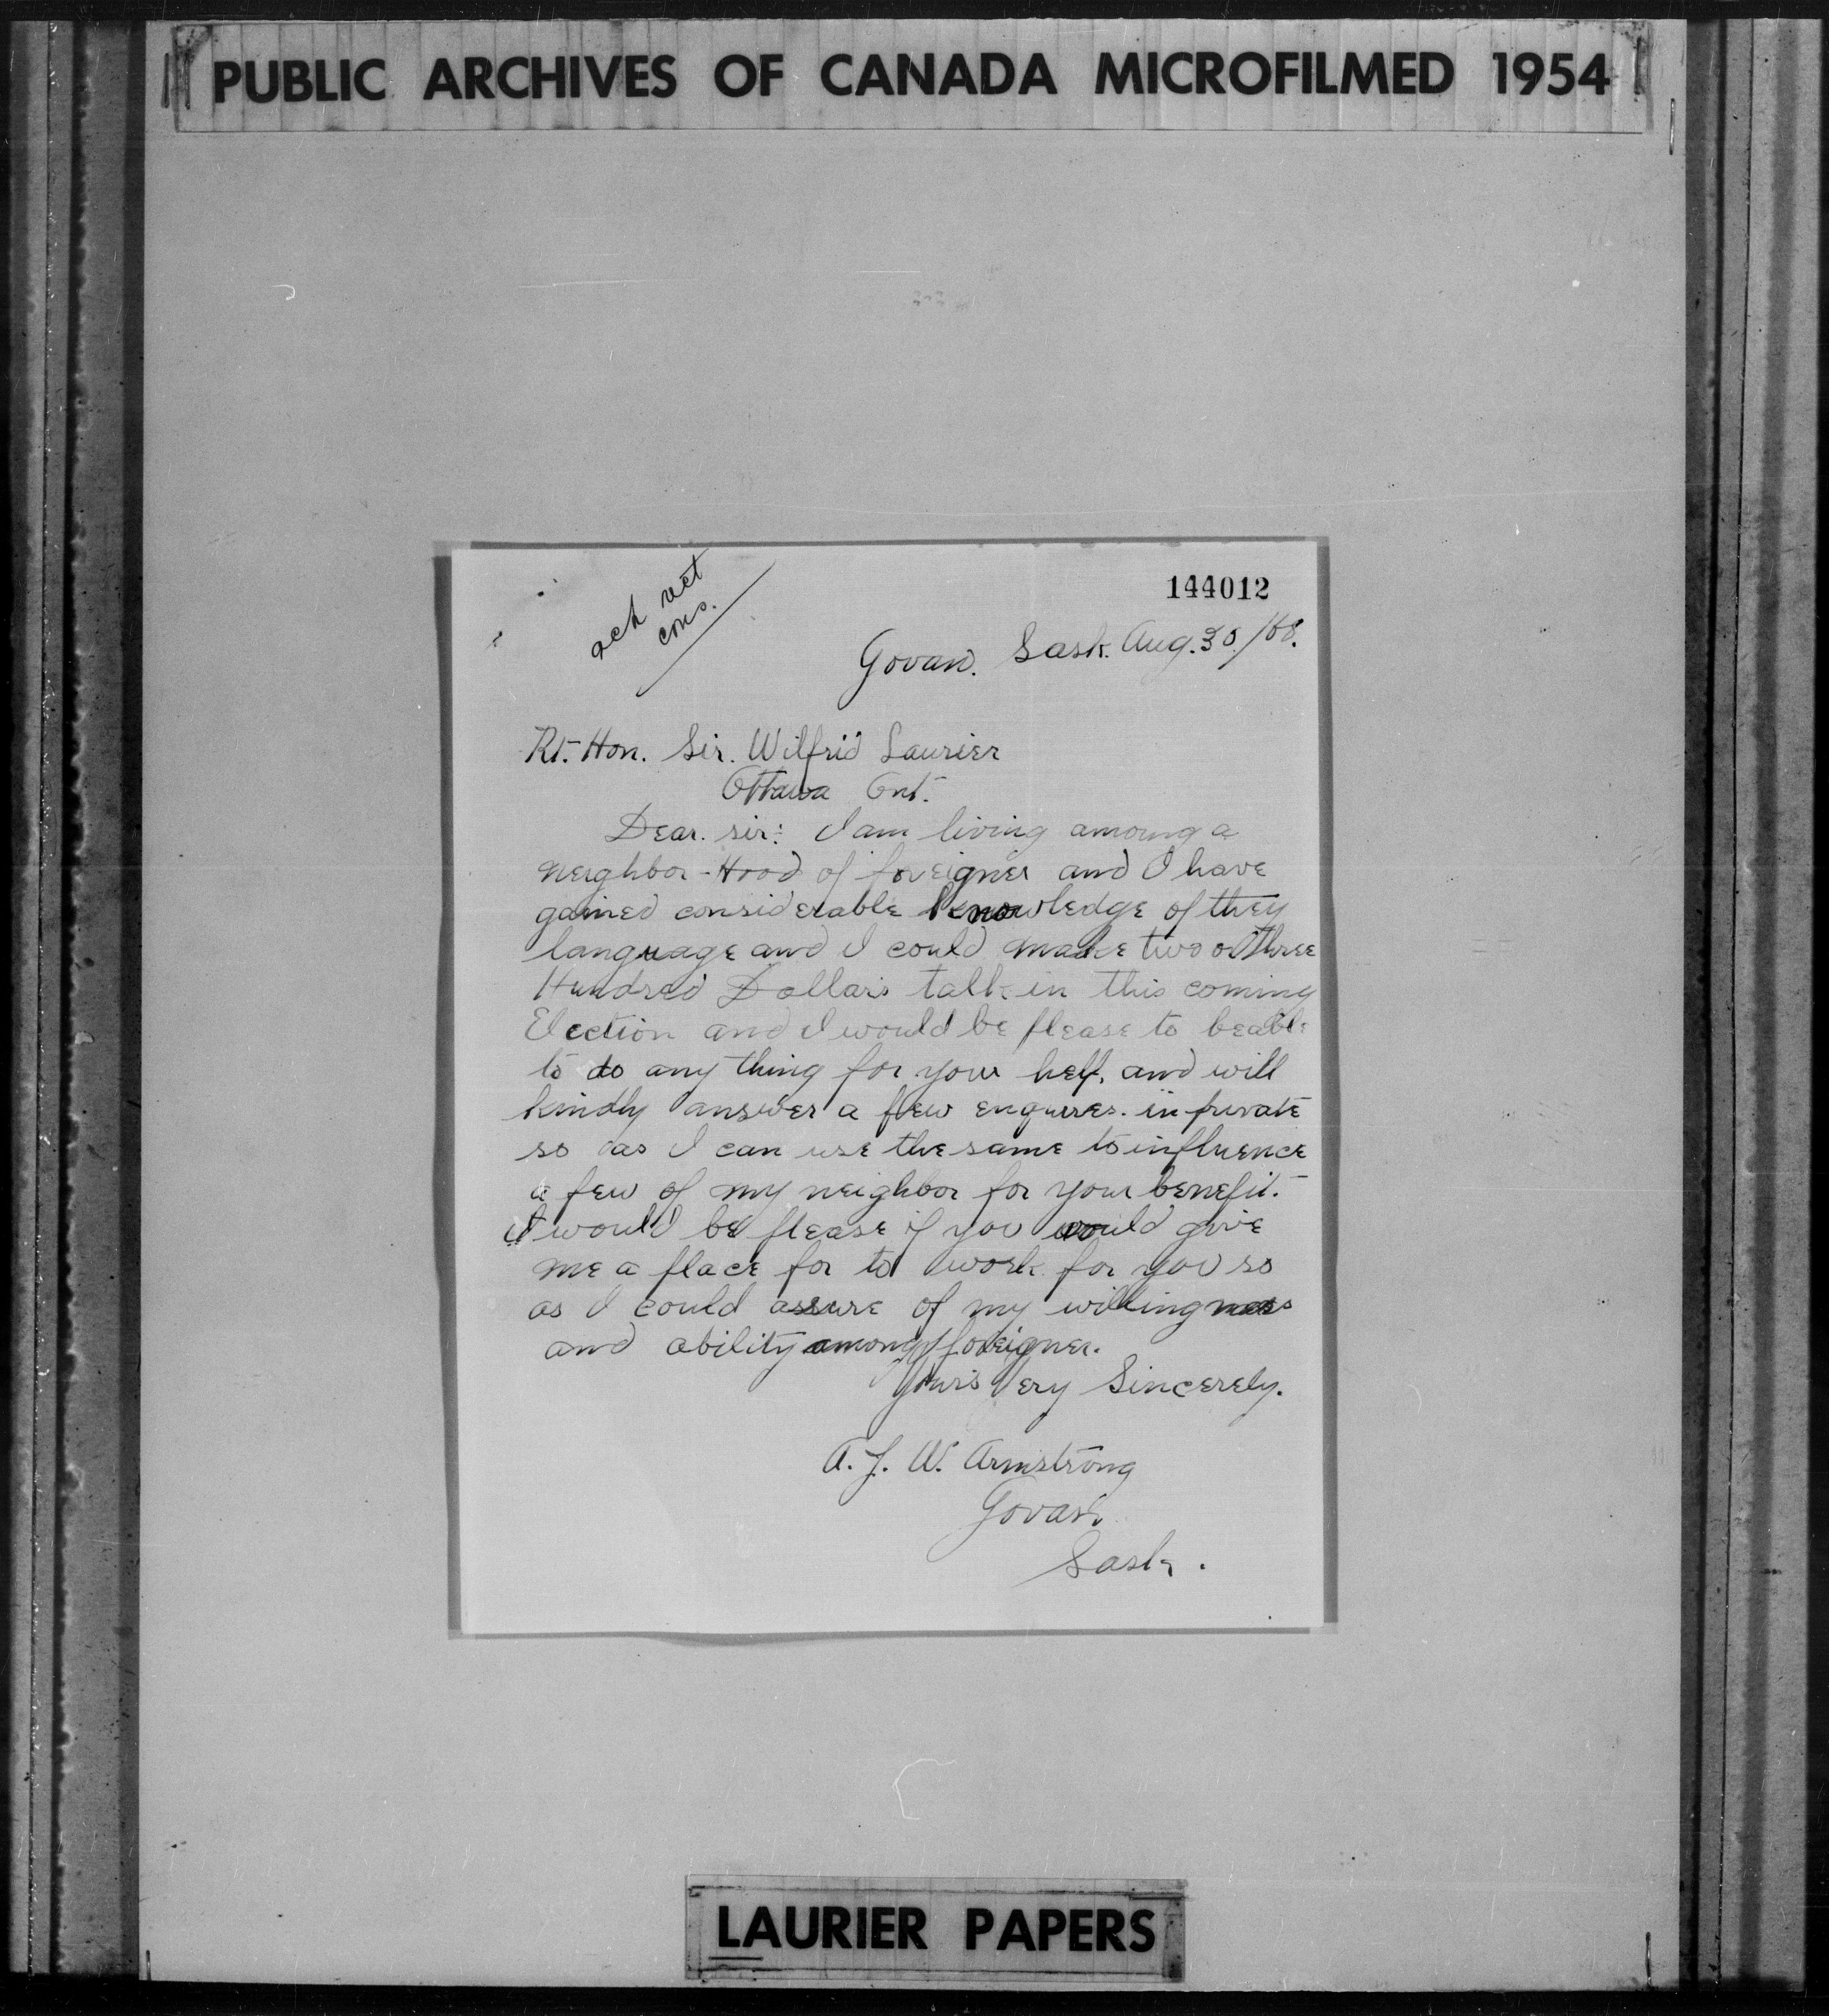 PUBLIC ARCHIVES OF CANADA MICROFILMED 1954
144012
ack
cons.
Govan. Sask. Aug. 30/08.
Rt. Hon. Sir. Wilfrid Laurier
Ottawa Ont.
Dear. sir: I am living amoung a
neighbor-Hood of foreigner and I have
gained considerable knowledge of they
language and I could make two or three
Hundred Dollars talk in this coming
Election and I would be please to beable
to do any thing for your help, and will
kindly answer a few enquires. in private
so as I can use the same to influence
a few of my neighbor for your benefit.
I would be please if you would give
me a place for to work for you so
as I could assure of my willingness
and ability among foreigner.
Your's Very Sincerely.
A. J. W. Armstrong
Govan
Sask.
LAURIER PAPERS